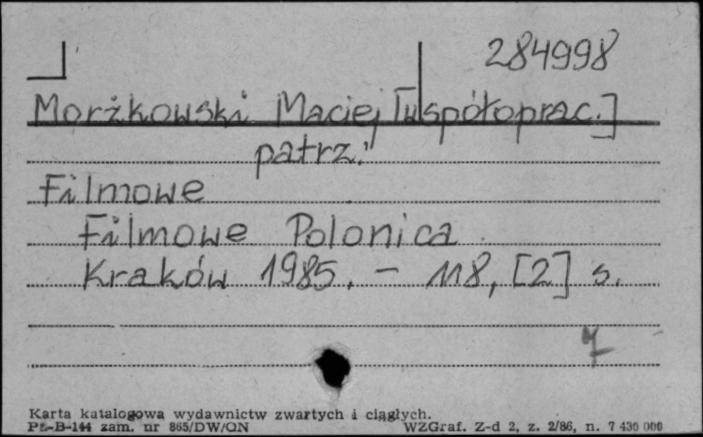 284998
Morżkowski Maciej [współoprac.]
patrz:
Filmowe
Filmowe Polonica
Kraków 1985. – 118, [2] s.
7
Karta katalogowa wydawnictw zwartych i ciągłych.
Pt-B-144 zam. nr 865/DW/ON WZGraf. Z-d 2, z. 2/86, n. 7 430 000